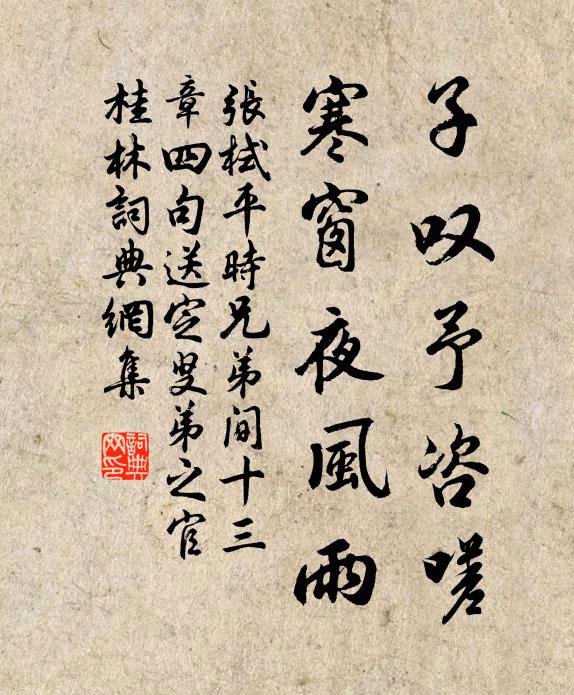 子叹予咨嗟
寒窗夜風雨
張栻平時兄弟间十三
章四句送定叟弟之官
桂林詞典網集
詞典
网印